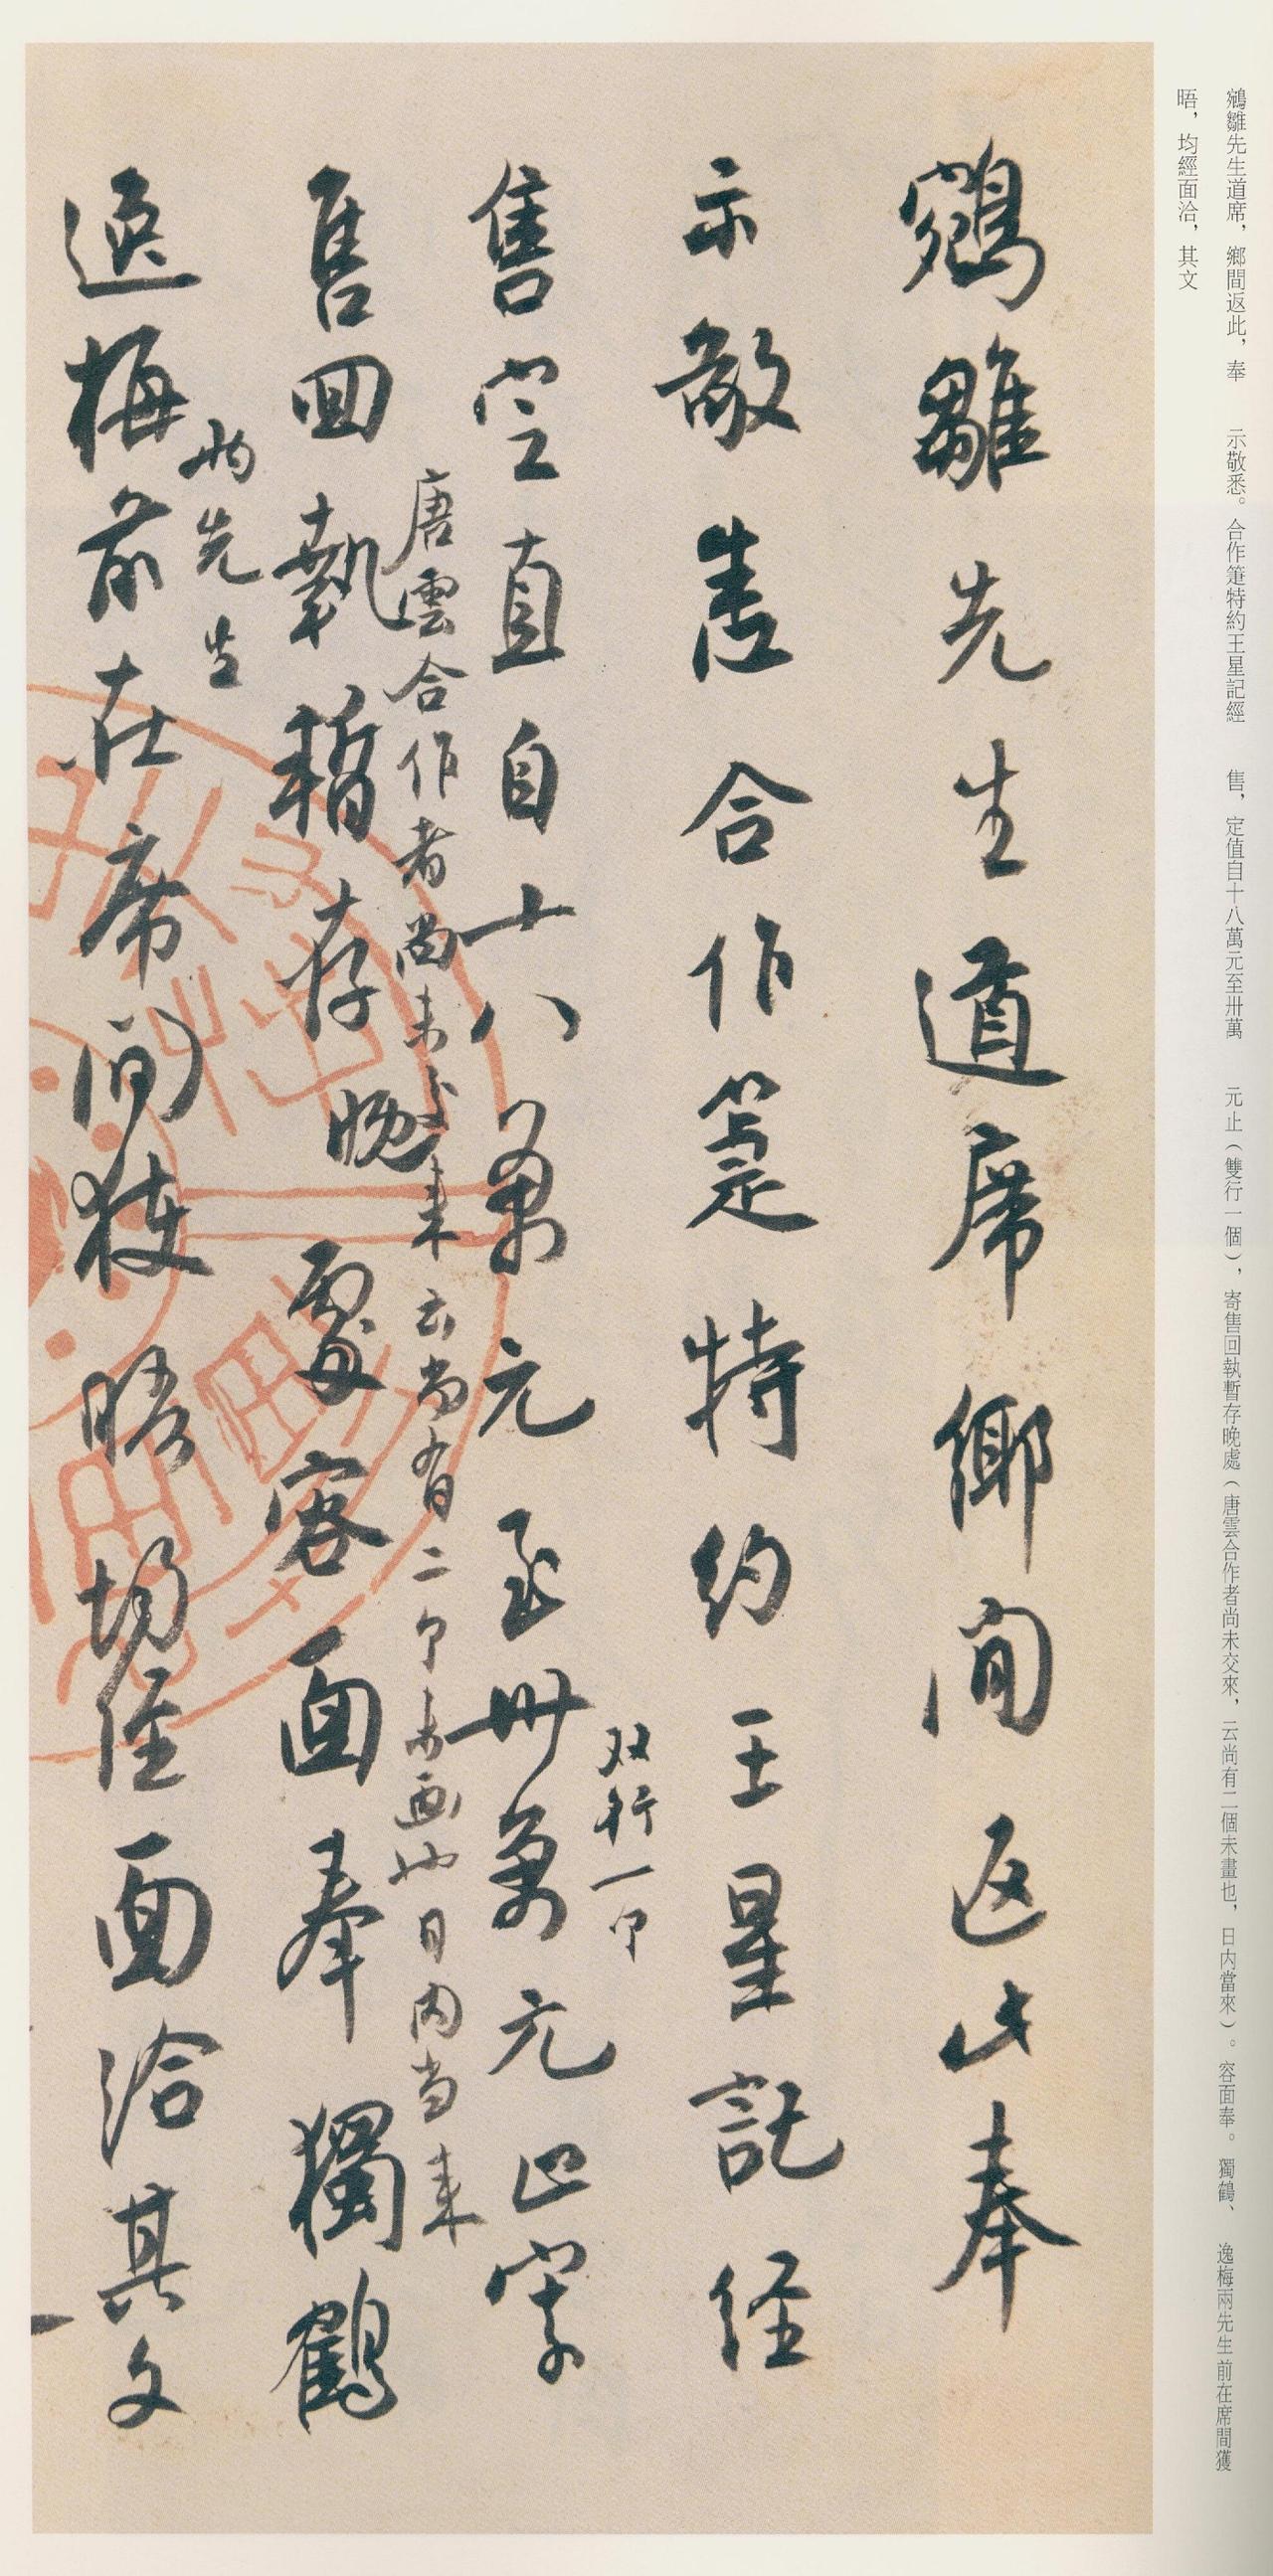 鵷雛先生道席，鄉間返此，奉　示敬悉。合作箑特約王星記經　售，定值自十八萬元至卅萬　元止（雙行一個），寄售回執暫存晚處（唐雲合作者尚未交來，云尚有二個未畫也，日内當來）。容面奉。獨鶴、　逸梅兩先生前在席間獲
晤，均經面洽，其文
鵷雛先生道席鄉间返此奉
示敬悉合作箑特約王星記経
售定直自十八萬元至卅萬元止寄
双行一个
售回執暫存晚處容面奉獨鶴
唐雲合作者尚未交来云尚有二个未画也日内当来
逸梅前在席间獲晤均経面洽其文
两先生